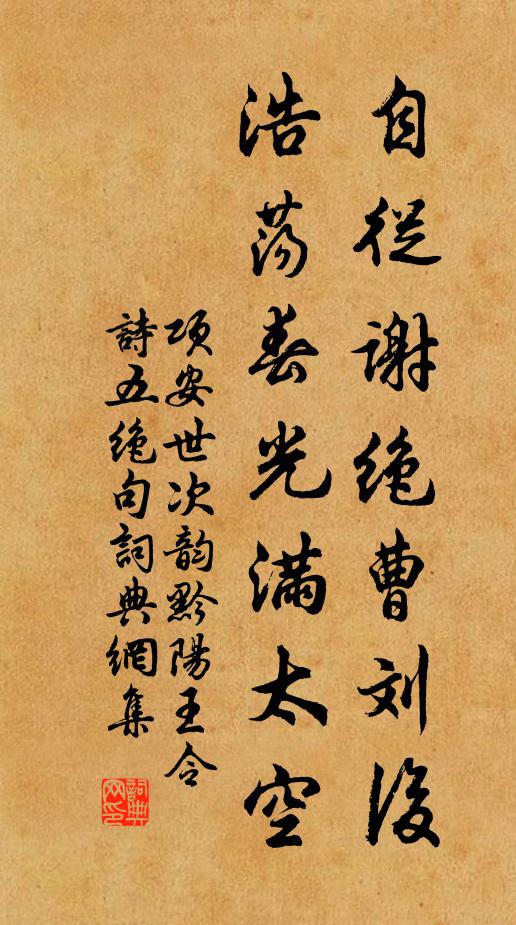 自從謝絕曹刘後
浩荡春光滿太空
项安世次韵黔陽王令
詩五絕句詞典網集
詞典网印